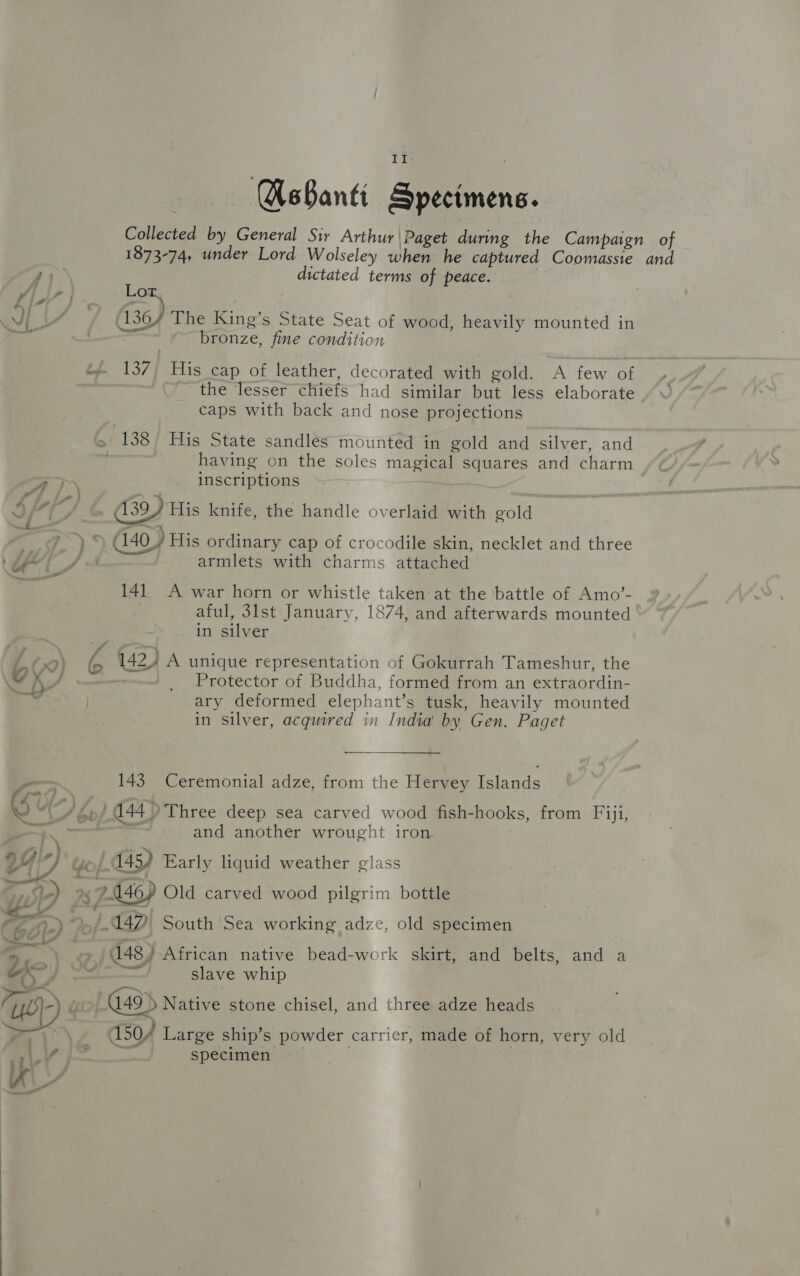 11
Ashanti Specimens.
Collected by General Sir Arthur Paget during the Campaign of
1873-74, under Lord Wolseley when he captured Coomassie and
dictated terms of peace.
Lot
136 The King's State Seat of wood, heavily mounted in
bronze, fine condition
137 His cap of leather, decorated with gold. A few of
the lesser chiefs had similar but less elaborate
caps with back and nose projections
138 His State sandles mounted in gold and silver, and
having on the soles magical squares and charm
inscriptions
139 His knife, the handle overlaid with gold
140 His ordinary cap of crocodile skin, necklet and three
armlets with charms attached
141 A war horn or whistle taken at the battle of Amo'-
aful, 31st January, 1874, and afterwards mounted
in silver
142 A unique representation of Gokurrah Tameshur, the
Protector of Buddha, formed from an extraordin-
ary deformed elephant's tusk, heavily mounted
in silver, acquired in India by Gen. Paget
143 Ceremonial adze, from the Hervey Islands
144 Three deep sea carved wood fish-hooks, from Fiji,
and another wrought iron
145 Early liquid weather glass
146 Old carved wood pilgrim bottle
147 South Sea working adze, old specimen
148 African native bead-work skirt, and belts, and a
slave whip
149 Native stone chisel, and three adze heads
150 Large ship's powder carrier, made of horn, very old
specimen